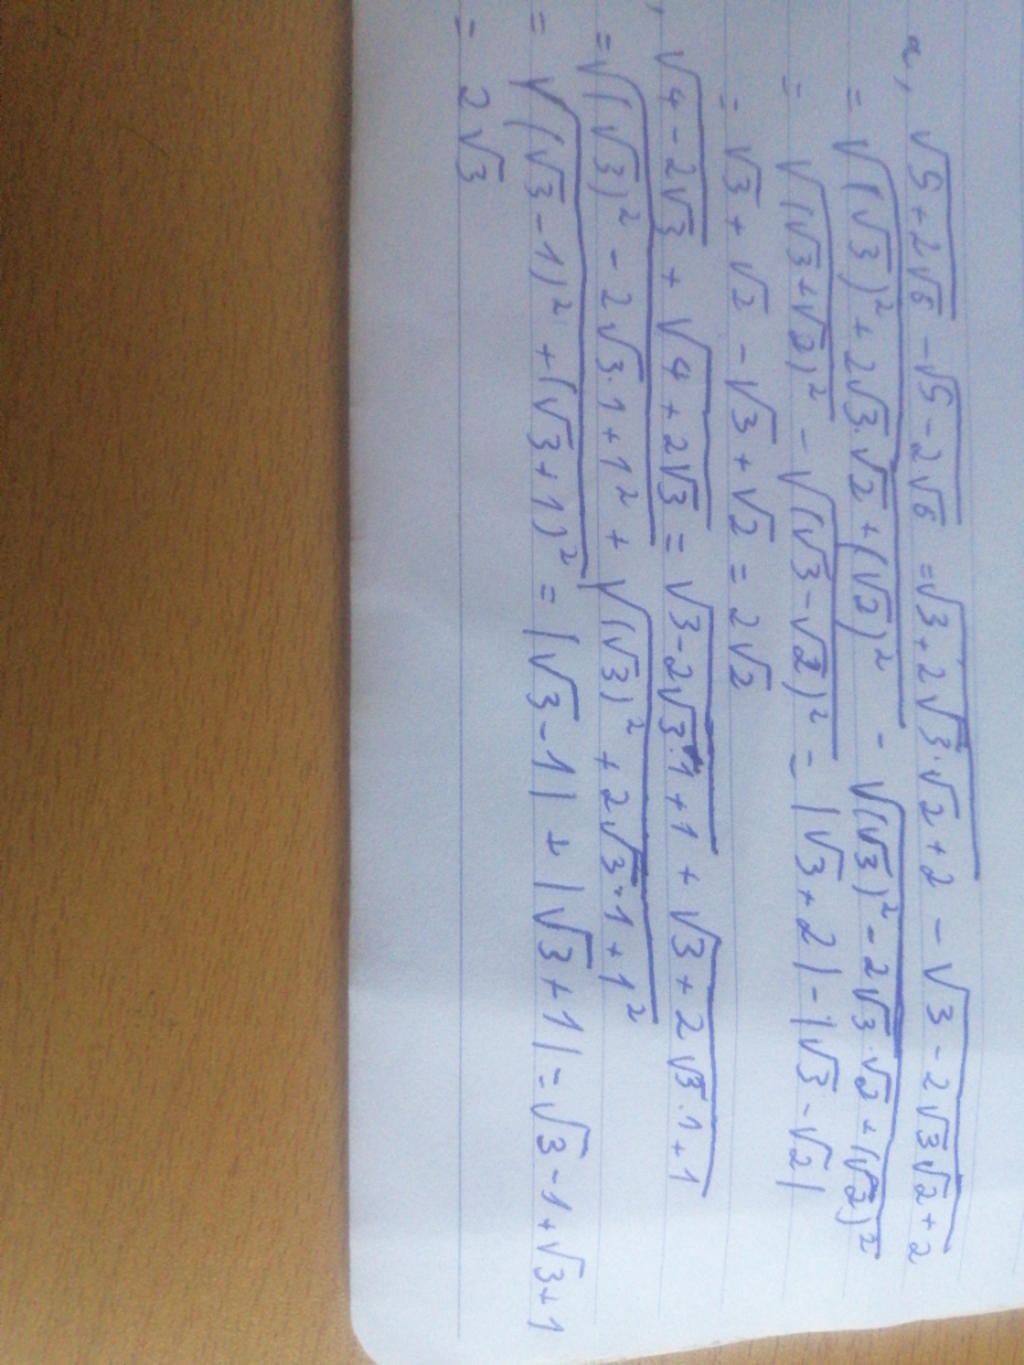 a, √(5+2√6) - √(5-2√6) = √(3+2√3·√2+2) - √(3-2√3√2+2)
= √((√3)²+2√3·√2+(√2)²) - √((√3)²-2√3·√2+(√2)²)
= √((√3+√2)²) - √((√3-√2)²) = |√3+2| - |√3-√2|
= √3+√2-√3+√2 = 2√2
, √(4-2√3) + √(4+2√3) = √(3-2√3·1+1) + √(3+2√3·1+1)
= √((√3)²-2√3·1+1²) + √((√3)²+2√3·1+1²)
= √((√3-1)²) + (√3+1)² = |√3-1| + |√3+1| = √3-1+√3+1
= 2√3